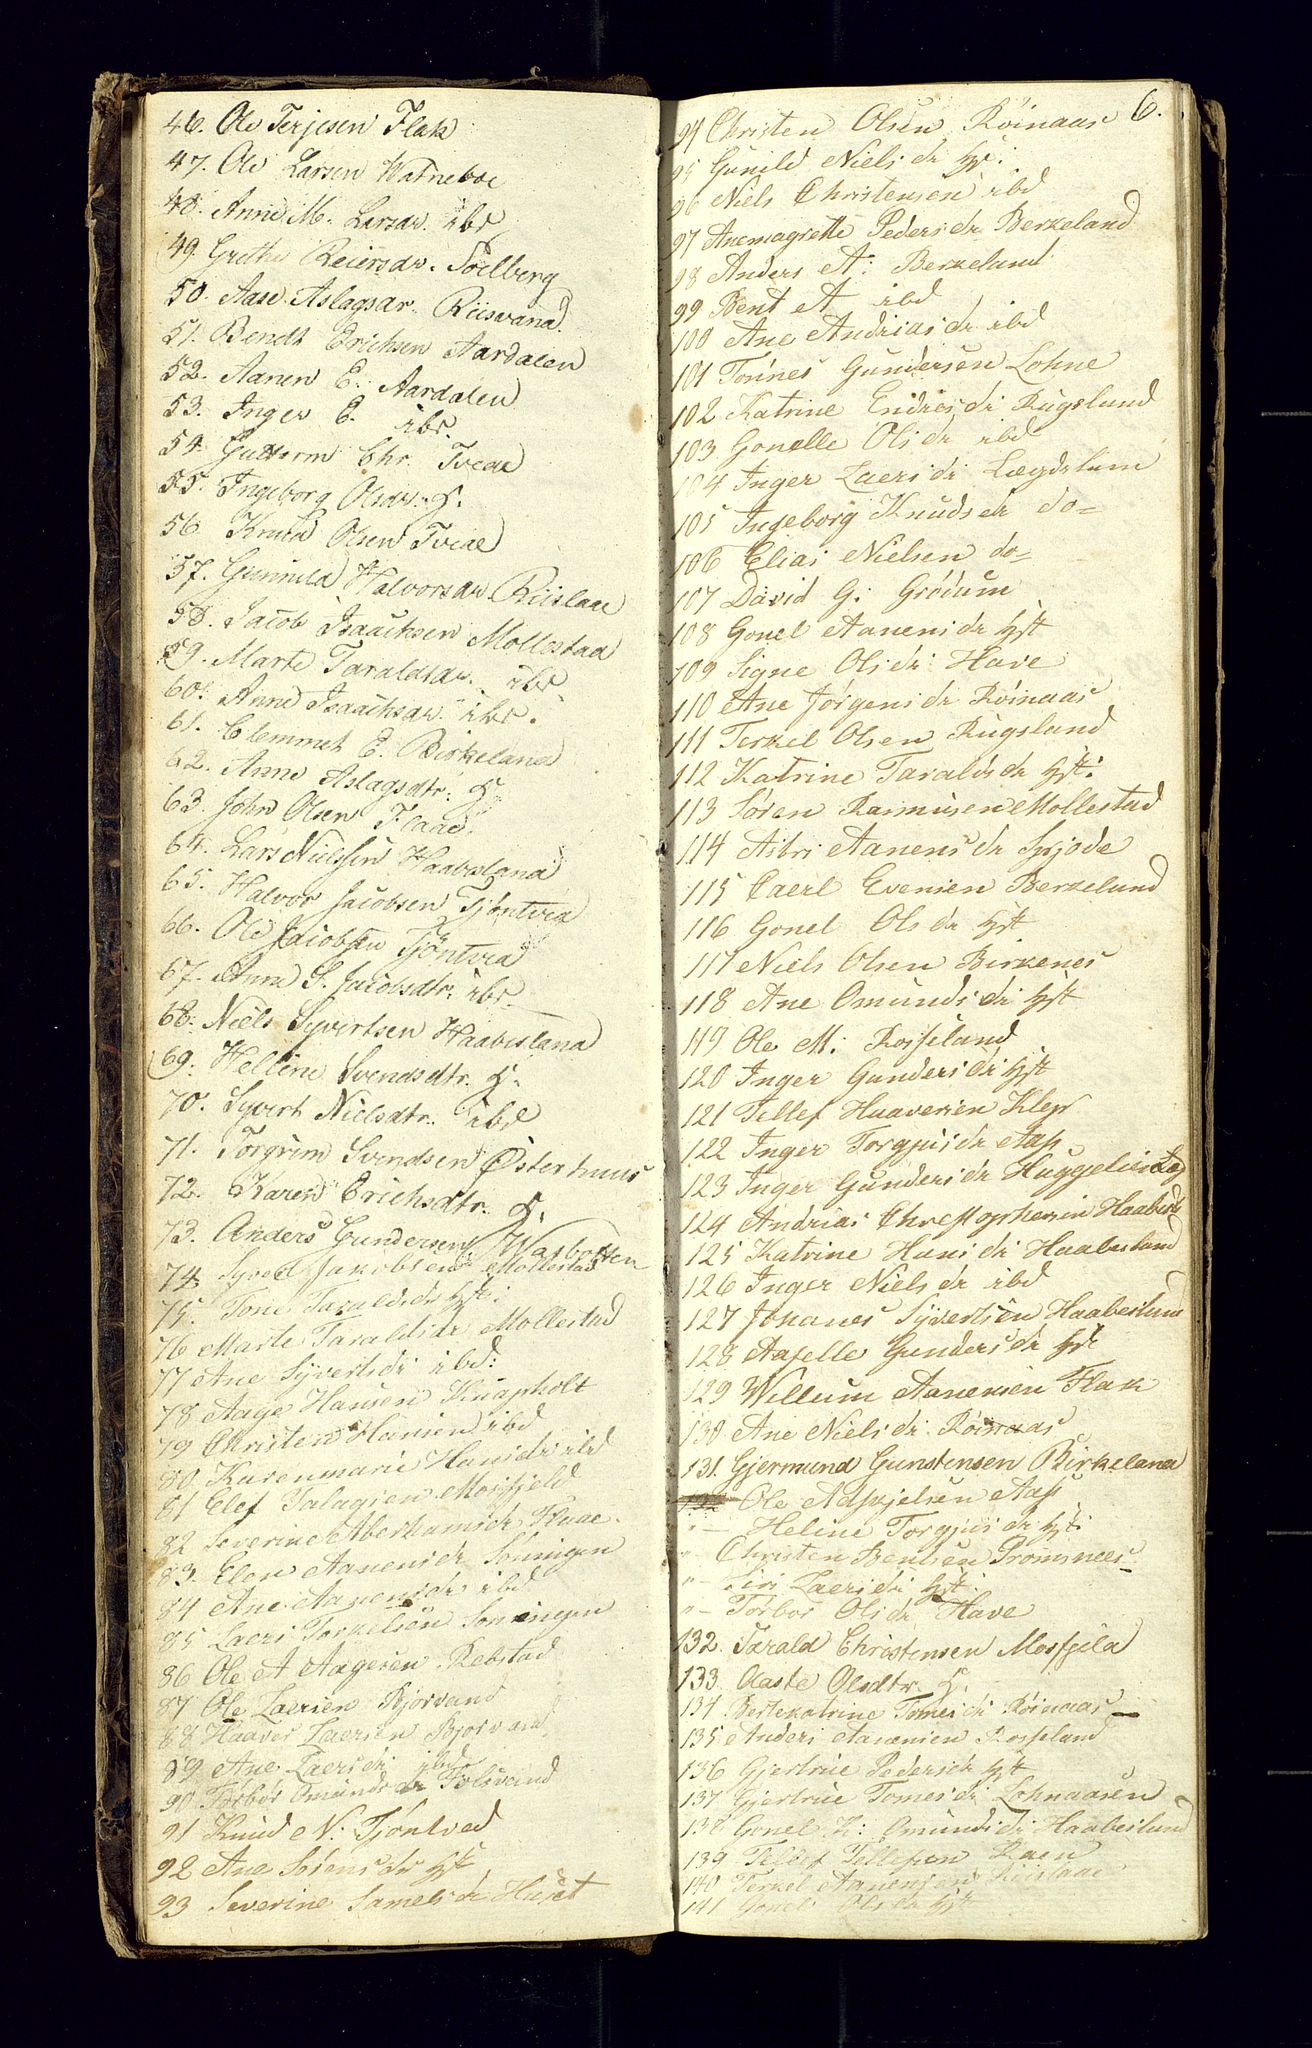 46. Ole Terjesen Flak
47. Ole Larsen Watneboe
48. Anne M. Larsdr. ibd
49. Grethe Reiersdr. Soelberg
50. Aase Aslagsdr. Riisvand.
51. Bendt Erichsen Aardalen
52. Aanen E. Aardalen
53. Inger E. ibd.
54. Guttorm Chr. Tveae
55. Ingeborg Olsdr. H.
56. Knud Olsen Tveae
57. Gunnild Halvorsdr Riislaae
58. Jacob Isaachsen Mollestad
59. Marte Taraldsdr. ibd
60. Anne Isaachsdr. ibd.
61. Clemmet E. Birkeland
62. Anne Aslagsdtr. H.
63. John Olsen Flaae.
64. Lars Nielssen Haabesland
65. Halvor Jacobsen Tjöntved
66. Ole Jacobsen Tjöntved
67. Anne S. Jacobsdtr. ibd.
68. Niels Syvertsen Haabesland
69. Helline Svendsdtr. H.
70. Syvert Nielsdtr. ibd
71. Torgrim Svendsen Østerhuus
72. Karen Erichsdtr. H.
73. Anders Gundersen Wasbotten
74 Syvert Jakobsen Mollestad
75. Tone Taraldsdr hst:
76 Marte Taraldsdr Mollestad
77 Ane Syvertsdr ibd:
78 Aage Hansen Knapholt
79 Christen Hansen ibd
80 Karenmarie Hansdr ibd
81 Elef Salagsen Mosfjeld
82 Severine Aberhamsdr Flaae.
83. Elen Aanensdr Sönningen
84 Ane Aanensdr ibd
85 Laers Torkelsen Sonningen
86 Ole A Aagesen Rebstad
87 Ole Laersen Bjorvand
88 Haaver Laersen Bjorvand
89 Ane Laersdr ibd
90 Torbor Omundsdr Tolsvand
91 Knud N: Tjöntved
92 Ane Sörensdr hst
93 Severine Samelsdr Huset
6.
94 Christen Olsen Röinaas
95 Gunild Nielsdr hst:
96 Niels Christensen ibd
97 Anemagrette Pedersdr Berkeland
98 Anders A: Berkeland
99 Bent A ibd
100 Ane Andriasdr ibd
101 Tönnes Gundersen Lohne
102 Katrine Endresdr Rugslund
103 Gonelle Olsdr ibd
104 Inger Laersdr Lægdslum
105 Ingeborg Knudsdr do=
106 Elias Nielsen do=
107 David G: Gröisum
108 Gonel Aanensdr hst
109 Signe Olsdr Have
110 Ane Jörgensdr Röinaas
111 Terkel Olsen Rugslund
112 Katrine Taraldsdr hst:
113 Sören Rasmusen Mollestad
114 Asbri Aanensdr
115 Caerl Evensen Berkelund
116 Gonel Olsdr hst
117 Niels Olsen Birkenes
118 Ane Omundsdr hst
119 Ole M: Rosseland
120 Inger Gundersdr hst
121 Tellef Haaversen Klep
122 Inger Torgjusdr Aas
123 Inger Gundersdr
124 Andrias Chrestophersen Haabesl
125 Katrine Hansdr Haabesland
126 Inger Nielsdr ibd
127 Johanes Syvertsen Haabeslund
128 Aaselle Gundersdr hst
129 Willum Aanensen Flak
130 Ane Nielsdr Röinaas
131. Gjermund Gunstensen Birkeland
132 Ole Adskjelsen Aas
"— Heline Torgjusdr hst:
"— Christen Bentsen Tromsnees
"— Siri Laersdr hst:
"— Torbor Olsdr Have
132. Tarald Christensen Mosfjeld
133. Aaste Olsdtr. H.
134 Bertekatrine Tomesdr Röinaas
135 Anders Aanensen Rosseland
136 Gjertrue Pedersdr hst
137 Gjertrue Tomesdr Lohnaasen
138 Gonel K: Omundsdr Haabeslund
139 Tellef Tellefsen Raen
140 Terkel Aanensen Riislaae
141 Gonel Olsdr hst